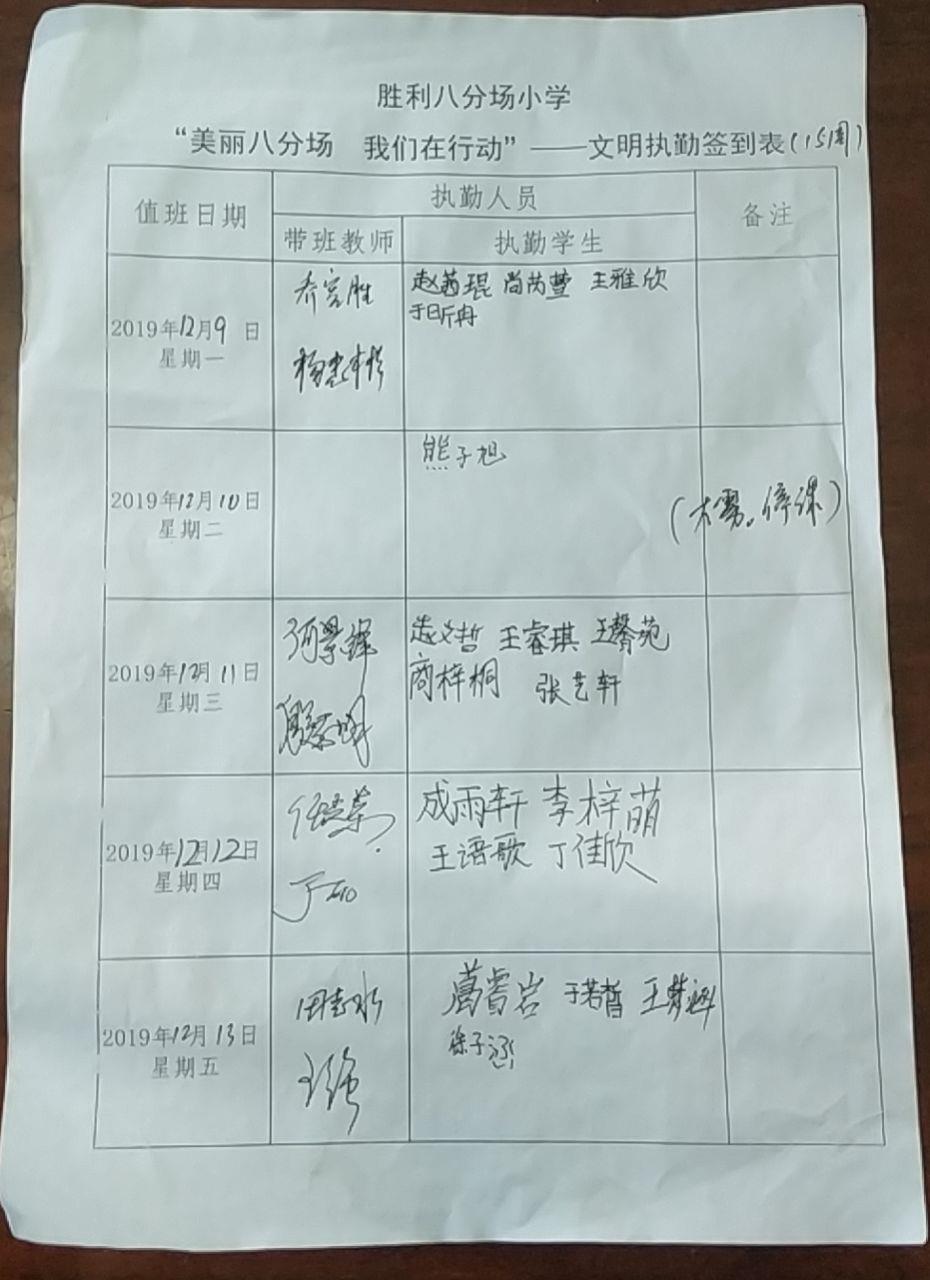 胜利八分场小学
“美丽八分场 我们在行动”——文明执勤签到表(15周)
值班日期 执勤人员 备注
带班教师 执勤学生
2019年12月9日
星期一
赵茜琨 尚芮萱 王雅欣
于昕冉
2019年12月10日
星期二
熊子旭
(大雾。停课)
2019年12月11日
星期三
赵文哲 王睿琪 王馨苑
商梓桐 张艺轩
2019年12月12日
星期四
成雨轩 李梓萌
王语歌 丁佳欣
2019年12月13日
星期五
田志水
王强
葛睿岩 于若皙 王梦涵
徐子涵